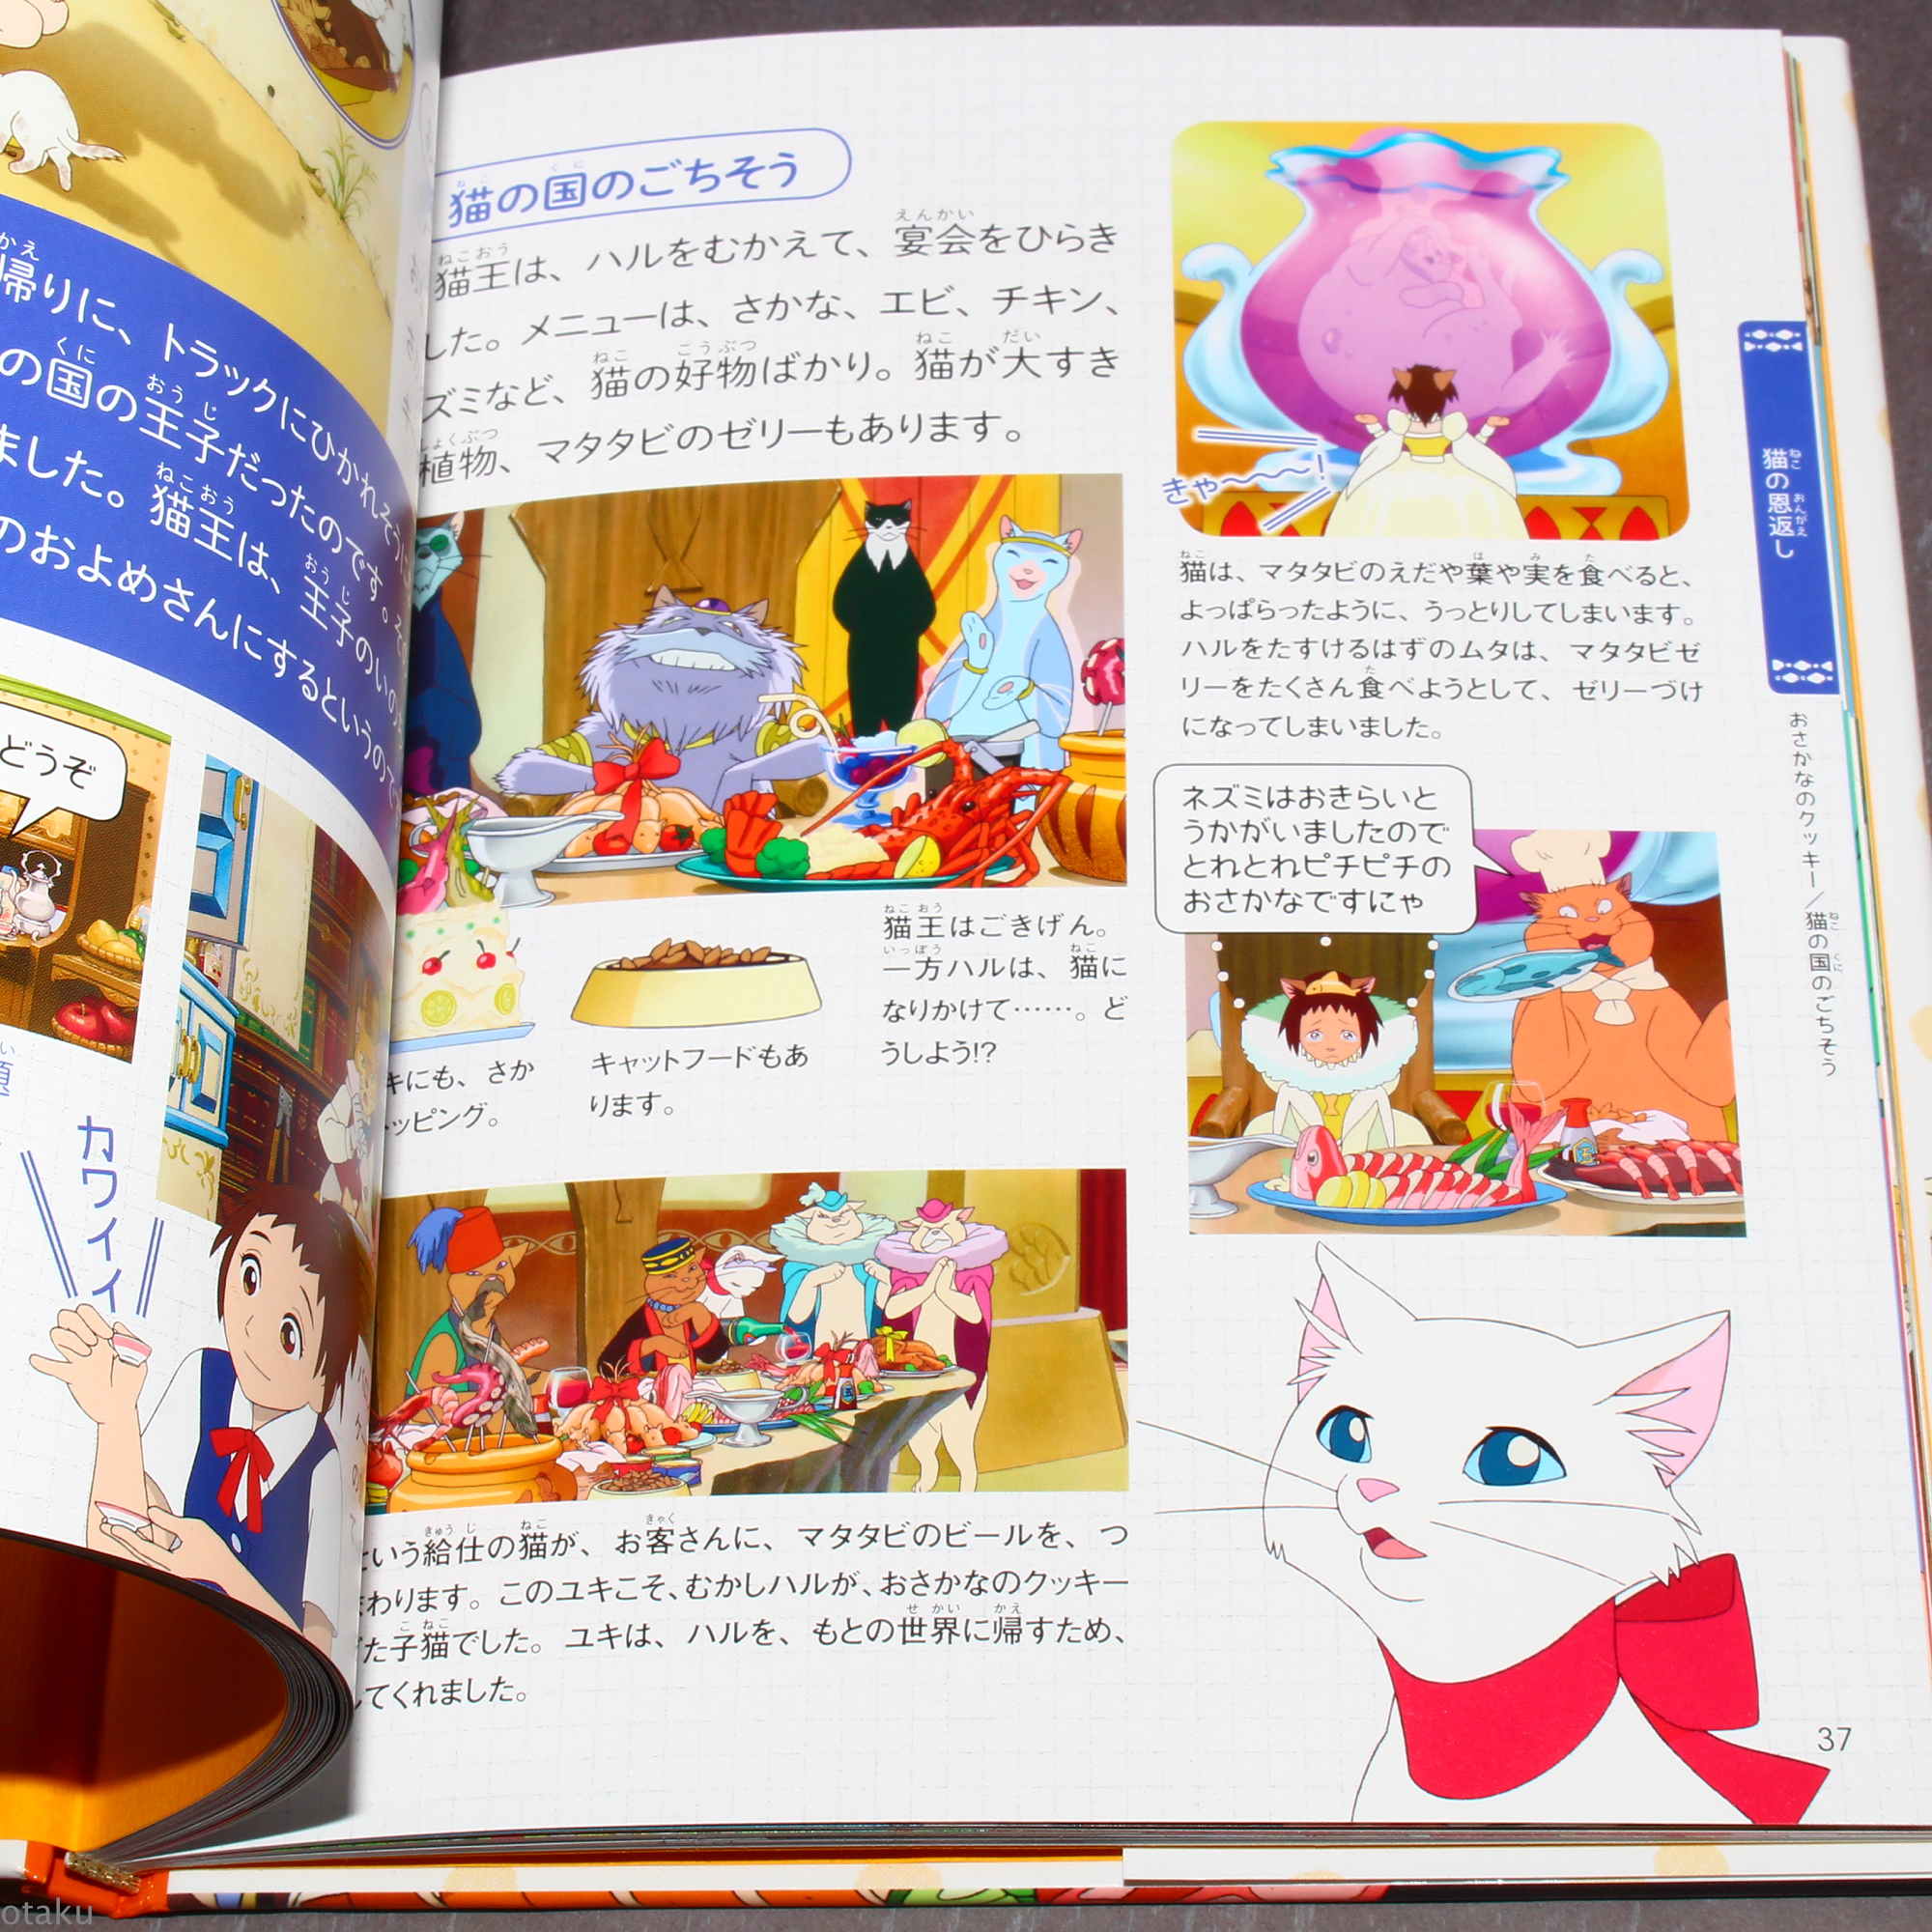 帰りに、トラックにひかれそうに
の国の王子だったのです。そ
ました。猫王は、王子のいの
のおよめさんにするというので
どうぞ
カワイイ
猫の国のごちそう
猫王は、ハルをむかえて、宴会をひらき
した。メニューは、さかな、エビ、チキン、
ズミなど、猫の好物ばかり。猫が大すき
植物、マタタビのゼリーもあります。
猫王はごきげん。
一方ハルは、猫に
なりかけて……。ど
うしよう!?
キにも、さか
トッピング。
キャットフードもあ
ります。
という給仕の猫が、お客さんに、マタタビのビールを、つ
まわります。このユキこそ、むかしハルが、おさかなのクッキー
た子猫でした。ユキは、ハルを、もとの世界に帰すため、
してくれました。
きゃ〜〜〜!
猫は、マタタビのえだや葉や実を食べると、
よっぱらったように、うっとりしてしまいます。
ハルをたすけるはずのムタは、マタタビゼ
リーをたくさん食べようとして、ゼリーづけ
になってしまいました。
ネズミはおきらいと
うかがいましたので
とれとれピチピチの
おさかなですにゃ
猫の恩返し
おさかなのクッキー/猫の国のごちそう
37
otaku